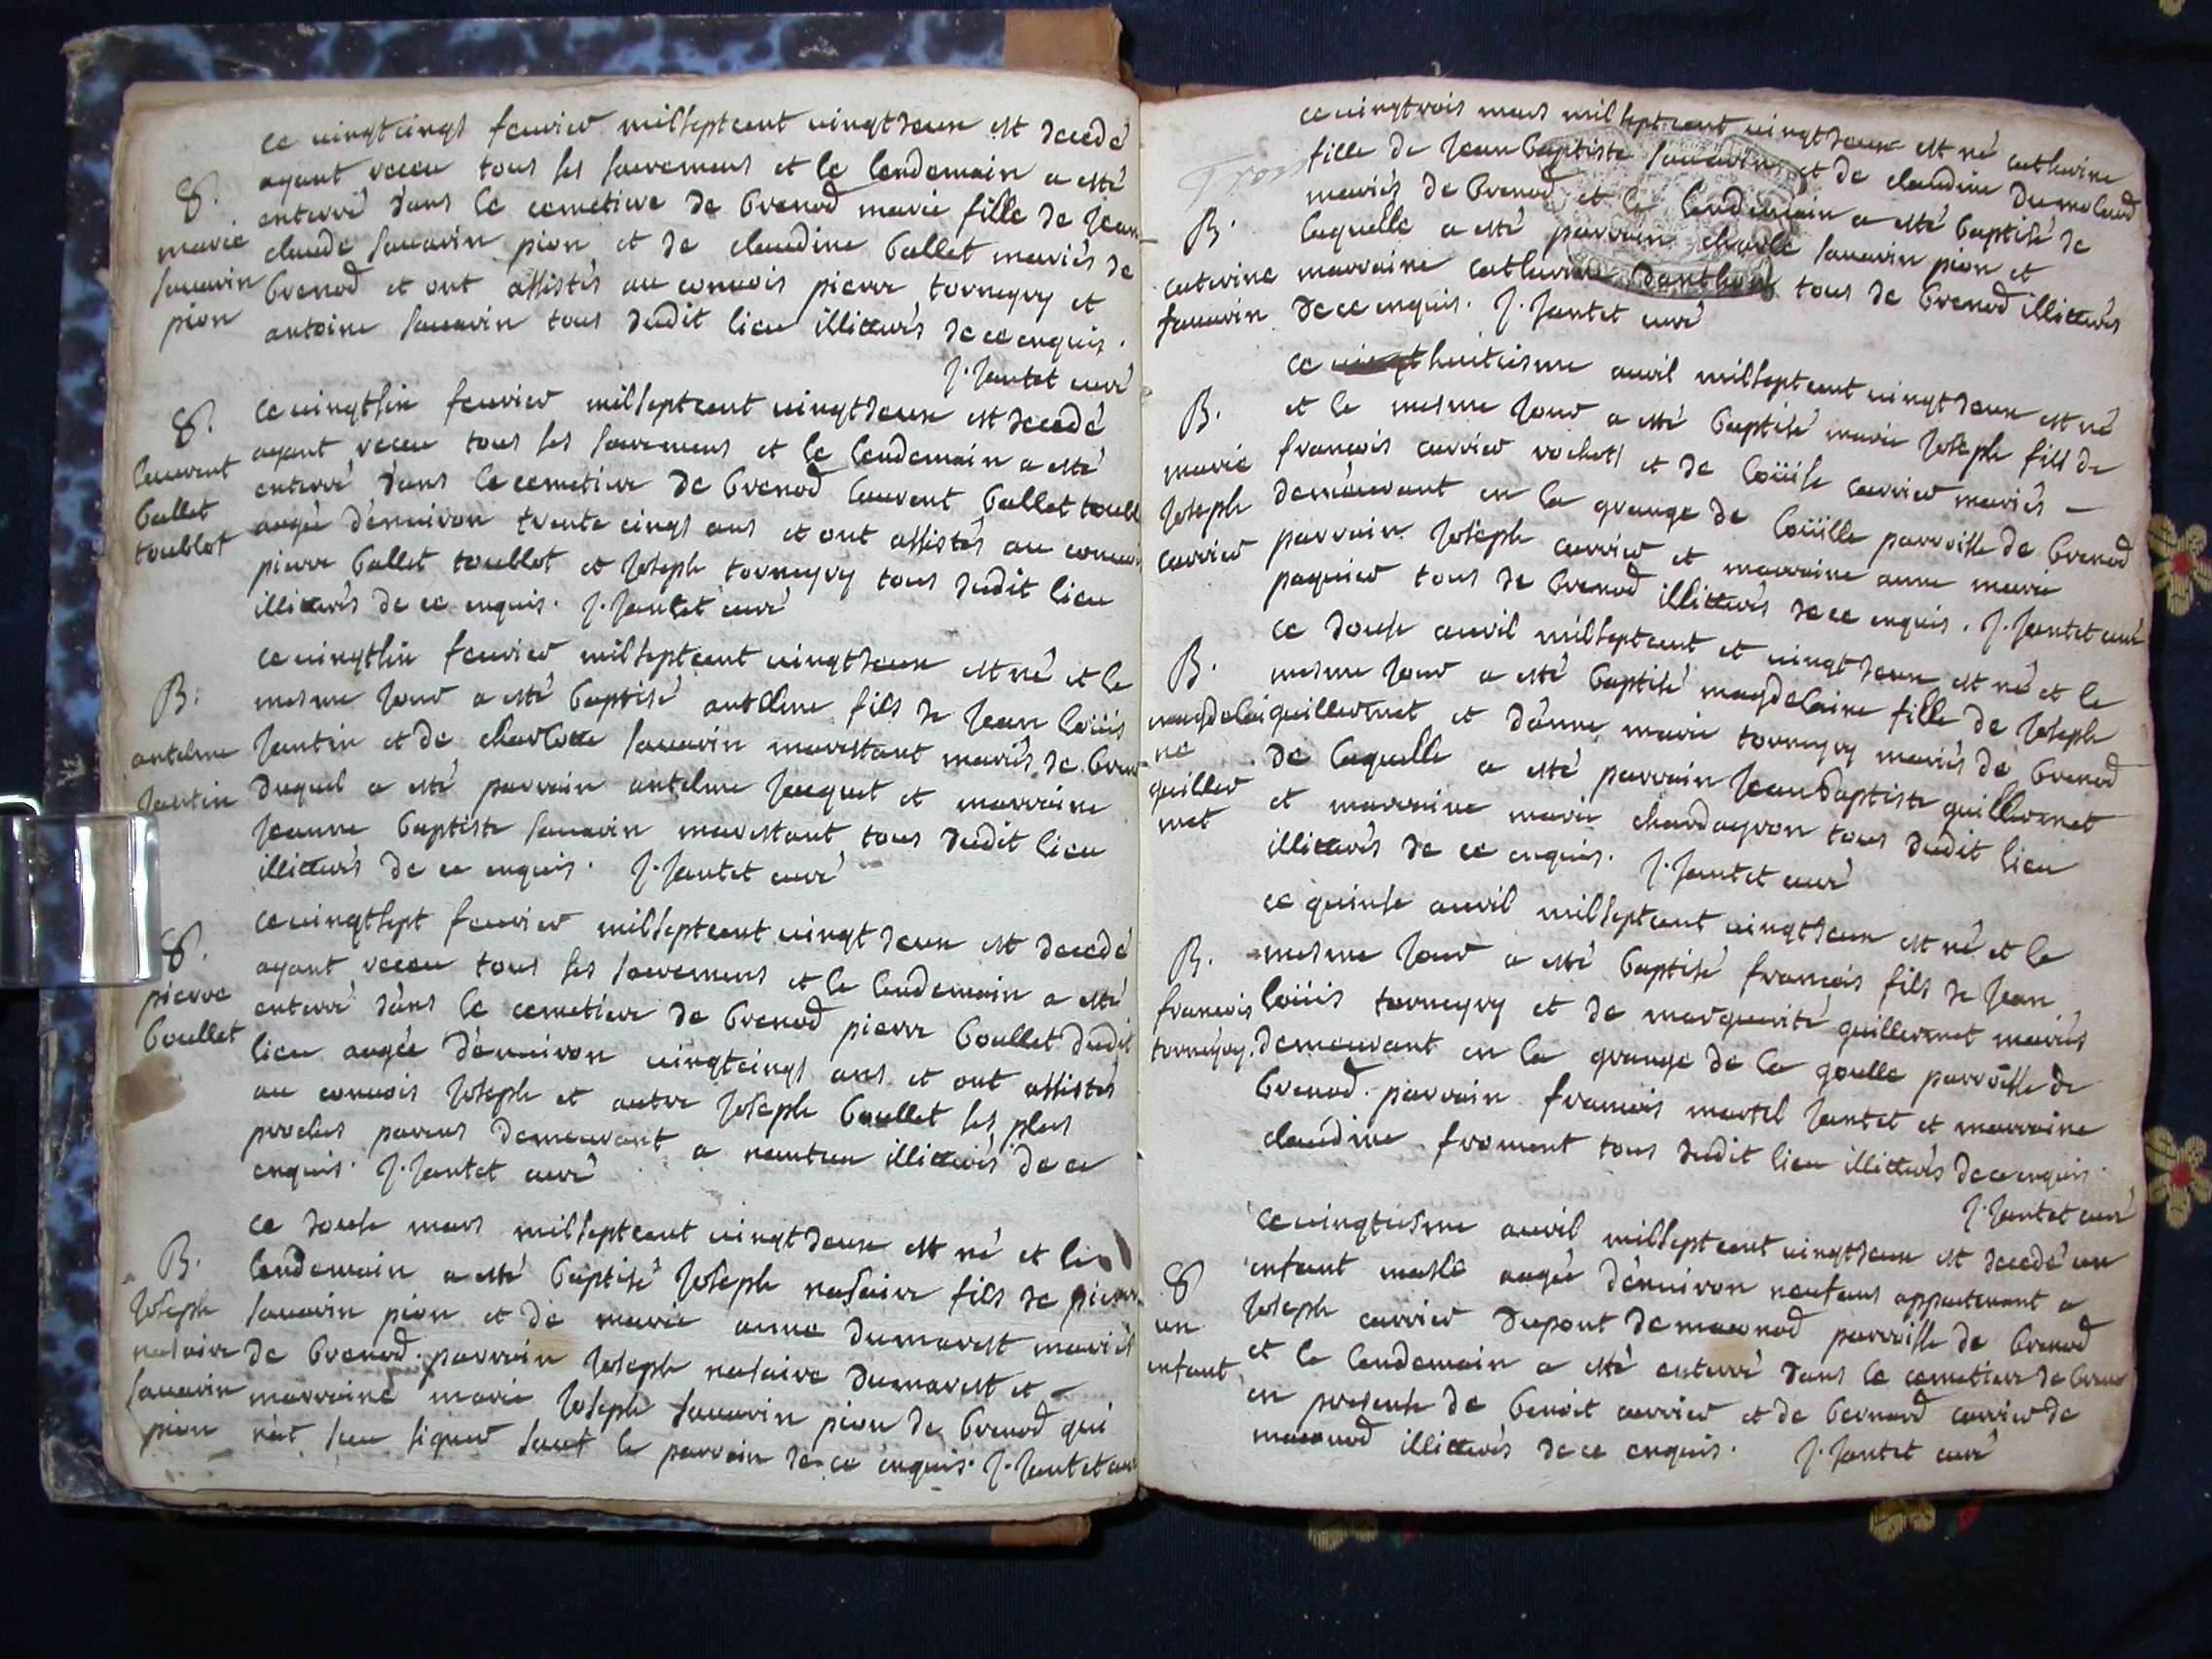 ce vingtcinqs feuvier milseptcent vingtdeux est decedé
ayant receu tous ses sacremens et le lendemain a esté
S. enterré dans le cemetiere de brenod marie fille de Jean
marie claude sauarin pion et de claudine ballet mariés de
sauarin brenod et ont assistés au conuois pierre torneyry et
pion antoine sauarin tous dudit lieu illiterés de ce enquis.
J. Jantet curé
S. ce vingtsix feuvier milseptcent vingtdeux est decedé
ayant receu tous ses sacremens et le lendemain a esté
laurent enterré dans le cemetiere de brenod laurent ballet toubl
ballet aagée d'enuiron trente cinqs ans et ont assistés au conuoi
toublot pierre ballet toublot et Joseph torneyry tous dudit lieu
illiterés de ce enquis. J. Jantet curé
ce vingtsix feuvier milseptcent vingtdeux est né et le
B. mesme Jour a esté baptisé antelme fils de Jean loüis
antelme Jantin et de charlotte sauarin marestant mariés de bren
Jantin duquel a esté parrain antelme Jacquet et marraine
Jeanne baptiste sauarin marestant tous dudit lieu
illiterés de ce enquis. J. Jantet curé
ce vingtsept feuvier milseptcent vingtdeux est decedé
S. ayant receu tous ses sacremens et le lendemain a esté
pierre enterré dans le cemetiere de brenod pierre boullet dudit
boullet lieu aagée d'enuiron vingtcinqs ans et ont assistés
au conuois Joseph et autre Joseph boullet ses plus
proches parens demeurant a nantua illiterés de ce
enquis. J. Jantet curé
ce douse mars milseptcent vingtdeux est né et le
B. lendemain a esté baptisé Joseph nasaire fils de pierre
Joseph sauarin pion et de marie anne dumarest mariés
nasaire de brenod. parrain Joseph nasaire dumarest et
sauarin marraine marie Joseph sauarin pion de brenod qui
pion n'at sceu signer sauf le parrain de ce enquis. J. Jantet curé
ce vingtrois mars milseptcent vingtdeux est né catherine
Trois fille de Jean baptiste sauarin et de claudine dumolard
mariés de brenod et le lendemain a esté baptisé de
B. laquelle a esté parrain charle sauarin pion et
caterine marraine catherine tous de brenod illiterés
sauarin de ce enquis. J. Jantet curé
ce huitiesme auvil milseptcent vingtdeux est né
B. et le mesme Jour a esté baptisé marie Joseph fils de
marie francois carrier rochets et de loüise carrier mariés
Joseph demeurant en la grange de loüille parroisse de brenod
carrier parrain Joseph carrier et marraine anne marie
paquier tous de brenod illiterés de ce enquis. J. Jantet curé
ce douse auvil milseptcent et vingtdeux est né et le
B. mesme Jour a esté baptisé magdelaine fille de Joseph
magdelai guillermet et d'anne marie torneyry mariés de brenod
ne de laquelle a esté parrain Jean baptiste guillermet
guiller et marraine marie chardayron tous dudit lieu
met illiterés de ce enquis. J. Jantet curé
ce quinse auvil milseptcent vingtdeux est né et le
B. mesme Jour a esté baptisé francois fils de Jean
francois loüis torneyry et de marguerite guillermet mariés
torneyry. demeurant en la grange de la goulle parroisse de
brenod. parrain francois martel Jantet et marraine
claudine froment tous dudit lieu illiterés de ce enquis.
J. Jantet curé
ce vingtiesme auvil milseptcent vingtdeux est decedé un
S enfant masle aagée d'enuiron neufans appartenant a
un Joseph carrier dupont de maconod parroisse de brenod
enfant et le lendemain a esté enterré dans le cemetiere de bren
en presense de benoit carrier et de bernard carrier de
maconod illiterés de ce enquis. J. Jantet curé